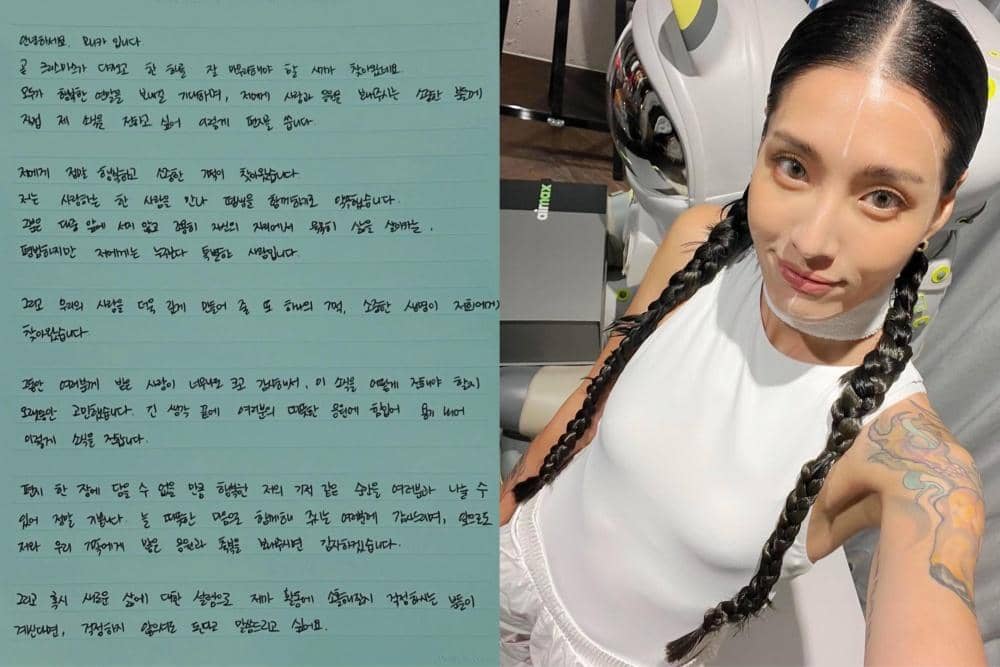 안녕하세요. 모니카 입니다
곧 크리스마스가 다가오고 한 해를 잘 마무리해야 할 시기가 찾아왔네요
모두가 행복한 연말을 보내길 기대하며, 저에게 사랑과 응원을 보내주시는 소중한 분들께
직접 제 소식을 전하고 싶어 이렇게 편지를 씁니다.
저에게 정말 행복하고 소중한 기적이 찾아왔습니다.
저는 사랑하는 한 사람을 만나 평생을 함께하기로 약속했습니다.
그분은 대중 앞에 서지 않고 조용히 자신의 자리에서 묵묵히 삶을 살아가는,
평범하지만 저에게는 누구보다 특별한 사람입니다.
그리고 우리의 사랑을 더욱 깊게 만들어 줄 또 하나의 기적, 소중한 생명이 저희에게
찾아왔습니다.
그동안 여러분께 받은 사랑이 너무나도 크고 감사해서, 이 소식을 어떻게 전해야 할지
오랫동안 고민했습니다. 긴 생각 끝에 여러분의 따뜻한 응원에 힘입어 용기 내어
이렇게 소식을 전합니다.
편지 한 장에 담을 수 없을 만큼 행복한 저의 기적 같은 순간을 여러분과 나눌 수
있어 정말 기쁩니다 늘 따뜻한 마음으로 함께해 주시는 여러분께 감사드리며, 앞으로도
저와 우리 가족에게 많은 응원과 축복을 보내주시면 감사하겠습니다.
그리고 혹시 새로운 삶에 대한 설렘으로 제가 활동에 소홀해질지 걱정하시는 분들이
계신다면, 걱정하지 않으셔도 된다고 말씀드리고 싶어요.
airmax